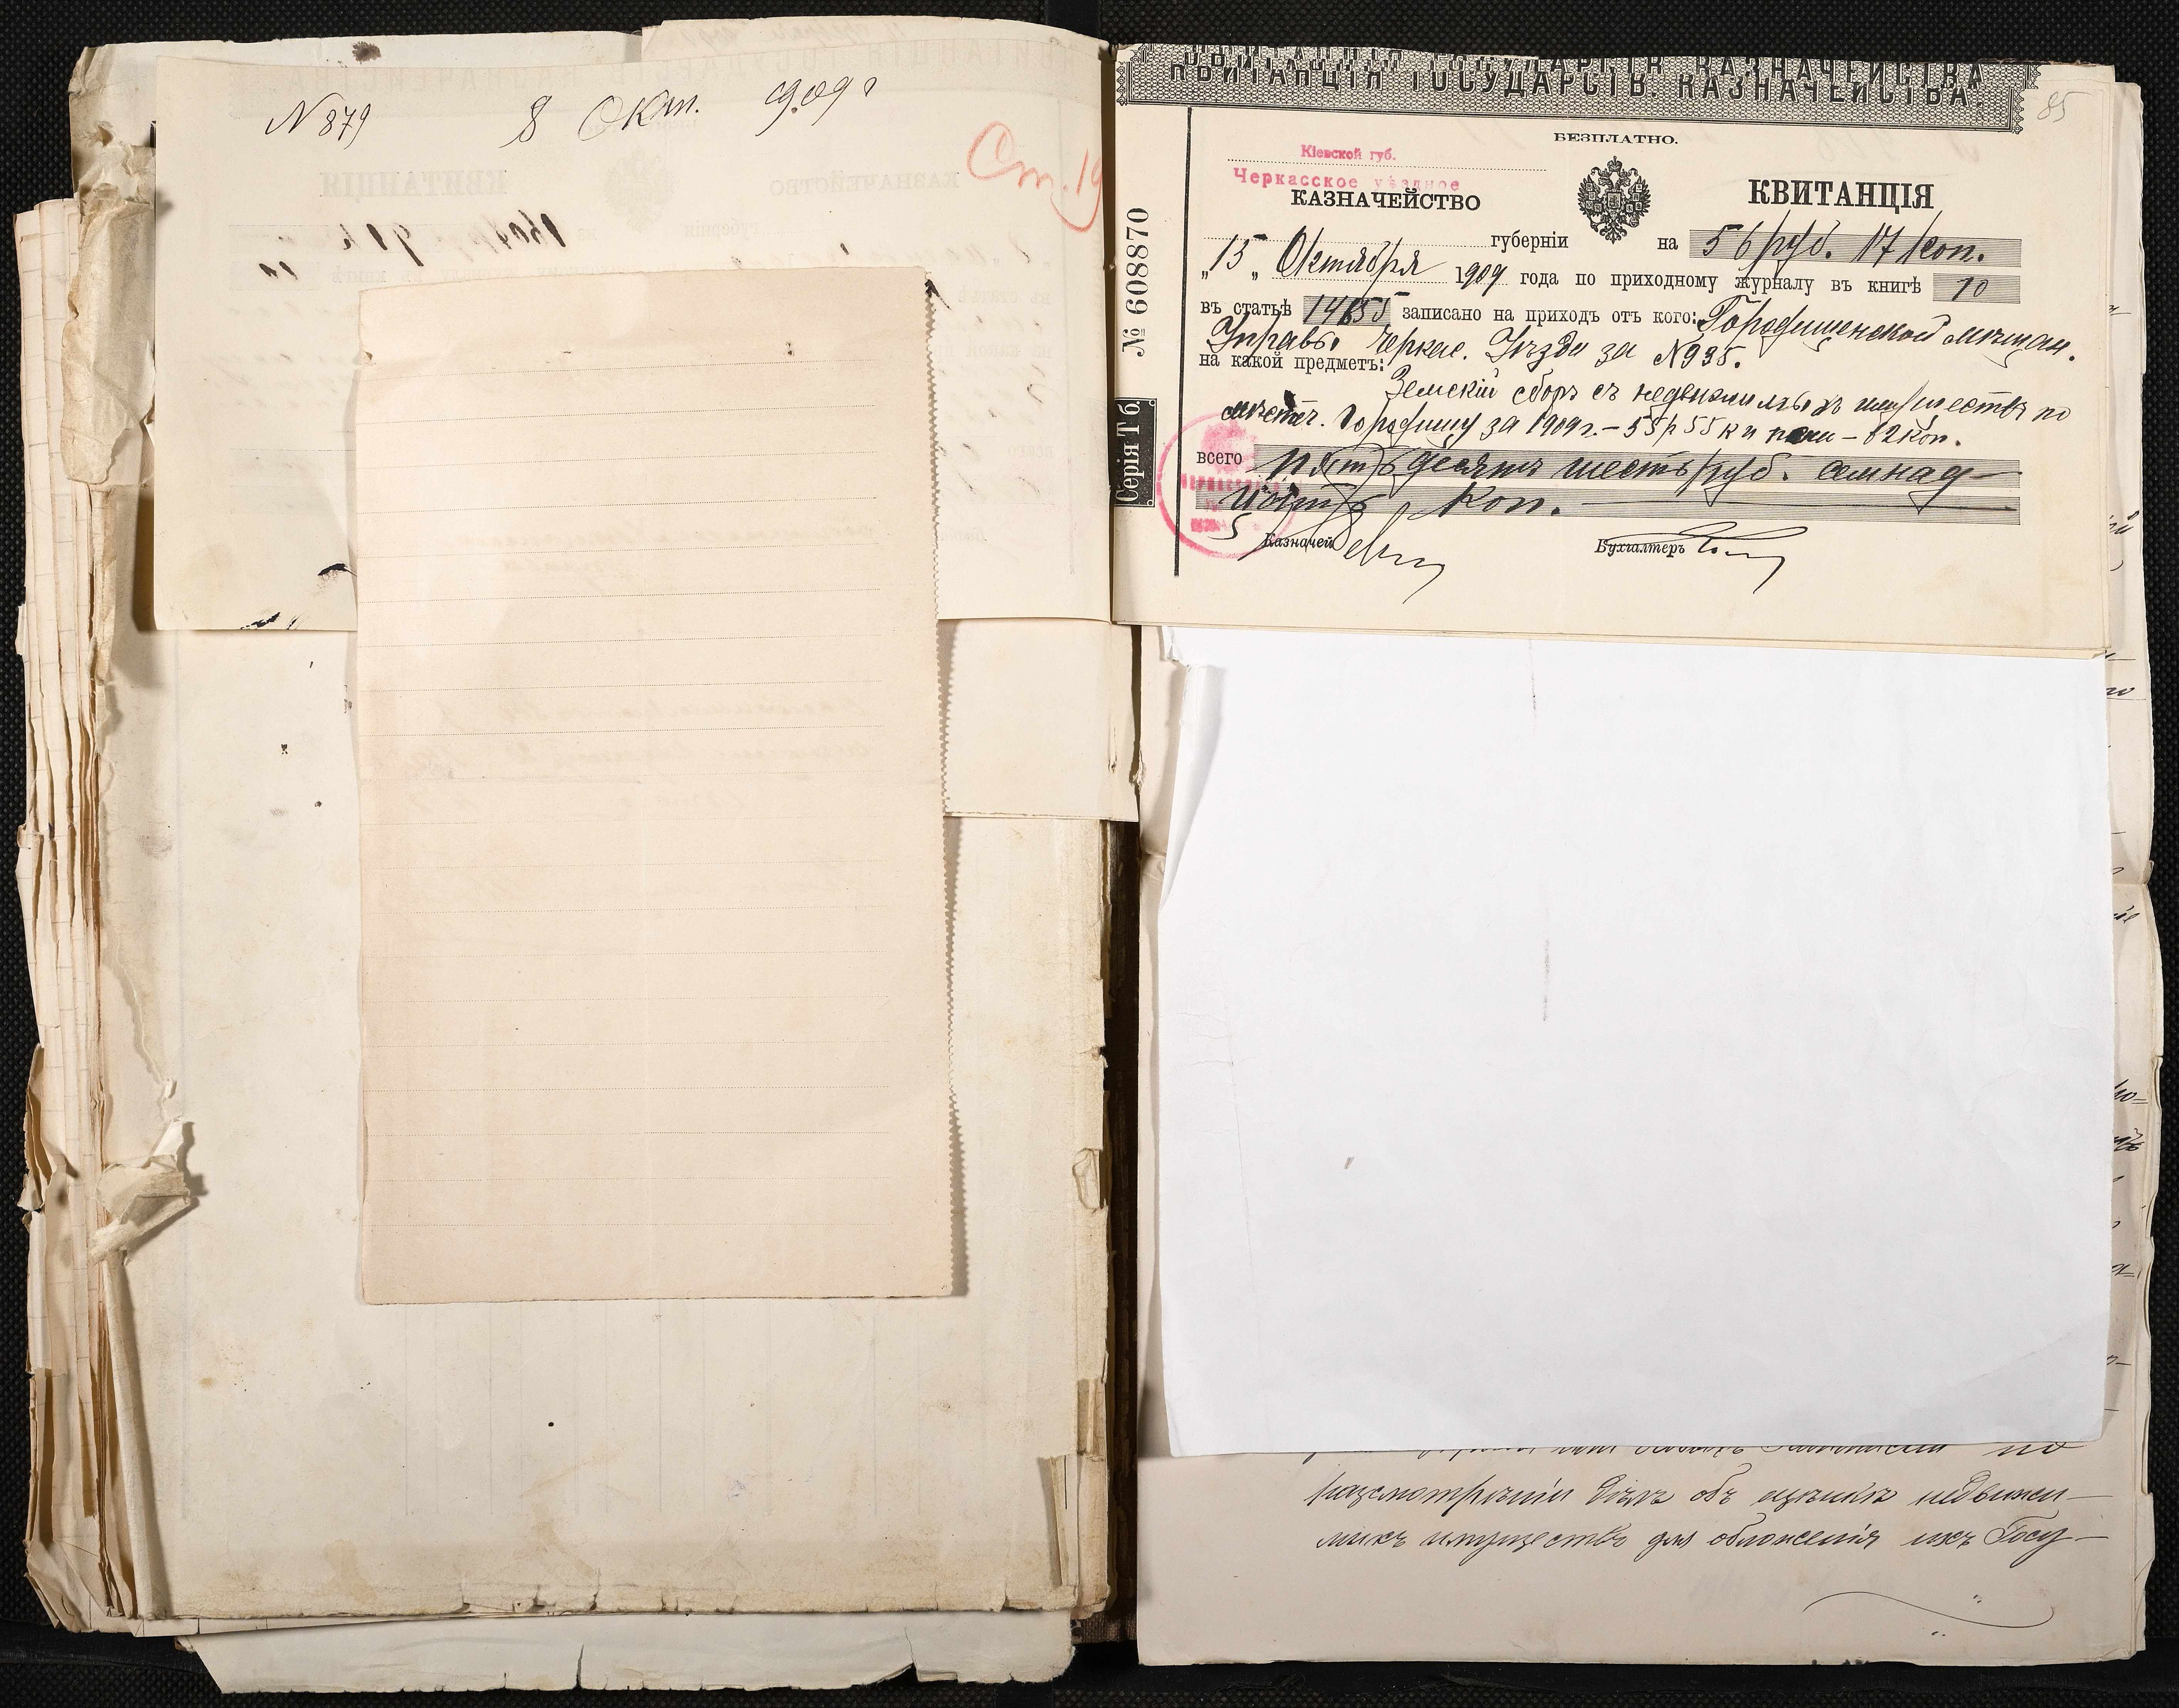 N 879 8 Окт. 909 г
Ст. 19
85
КВИТАНЦІЯ ГОСУДАРСТВ. КАЗНАЧЕЙСТВА.
БЕЗПЛАТНО.
Кіевской губ.
Черкасское уѣздное
КАЗНАЧЕЙСТВО
КВИТАНЦІЯ
губерніи на 56 руб. 17 коп.
„15„ Октября 1909 года по приходному журналу въ книгѣ 10
въ статьѣ записано на приходъ отъ кого: Городищенской мѣщан.
Управы Черкас. Уѣзда за N 935.
на какой предметъ:
Земскій сборъ съ недвижимыхъ имуществъ по
мѣстеч. Городищу за 1909 г. – 55 р 55 к и пени – 62 коп.
всего пятьдесятъ шесть руб. семнад-
цать коп.
Казначей
Бухгалтеръ
№ 608870
Серія Т б.
по
разсмотрѣніи дѣлъ объ оцѣнкѣ недвижи-
михъ имуществъ для обложенія ихъ Госу-